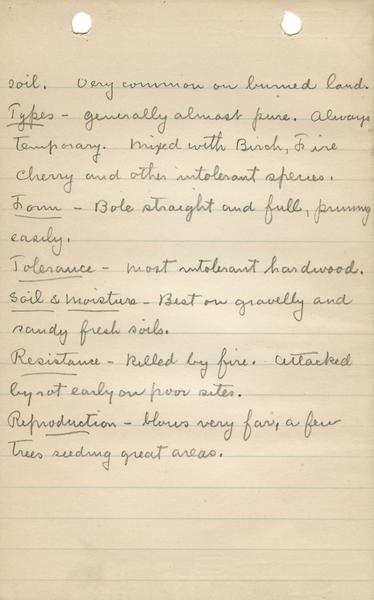 soil. Very common on burned land.
Types - generally almost pure. Always
temporary. Mixed with Birch, Fire
Cherry and other intolerant species.
Form - Bole straight and full, pruning
easily.
Tolerance - most intolerant hardwood.
Soil & Moisture - Best on gravelly and
sandy fresh soils.
Resistance - killed by fire. Attacked
by rot early on poor sites.
Reproduction - blows very far, a few
trees seeding great areas.